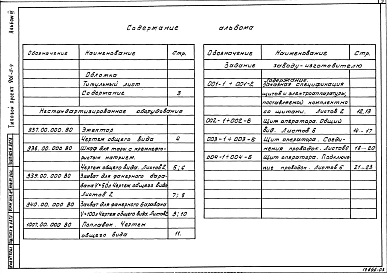 Содержание альбома
Обозначение Наименование Стр.
Обложка
Титульный лист
Содержание 3
Нестандартизированное оборудование
337.00.000 ВО Эжектор
Чертеж общего вида 4
338.00.000 ВО Шкаф для тары с кремнефто-
ристым натрием.
Чертеж общего вида. Листов 2 5; 6
339.00.000 ВО Захват для фанерного бара-
бана V=50л Чертеж общего вида
Листов 2 7; 8
340.00.000 ВО Захват для фанерного барабана
V=100л Чертеж общего вида. Листов 2 9; 10
1007.00.000 ВО Поплавок. Чертеж
общего вида 11.
Обозначение Наименование Стр.
Задание заводу-изготовителю
Содержание.
001-1 ÷ 001-2 Заказная спецификация
щитов и электроаппаратуры,
поставляемой комплектно
со щитами. Листов 2 12,13
002-1÷002-6 Щит оператора. Общий
вид. Листов 6 14-17
003-1÷003-8 Щит оператора. Соеди-
нения проводок. Листов 8 18-20
004-1÷004-6 Щит оператора. Подключе-
ние проводок. Листов 6 21-23